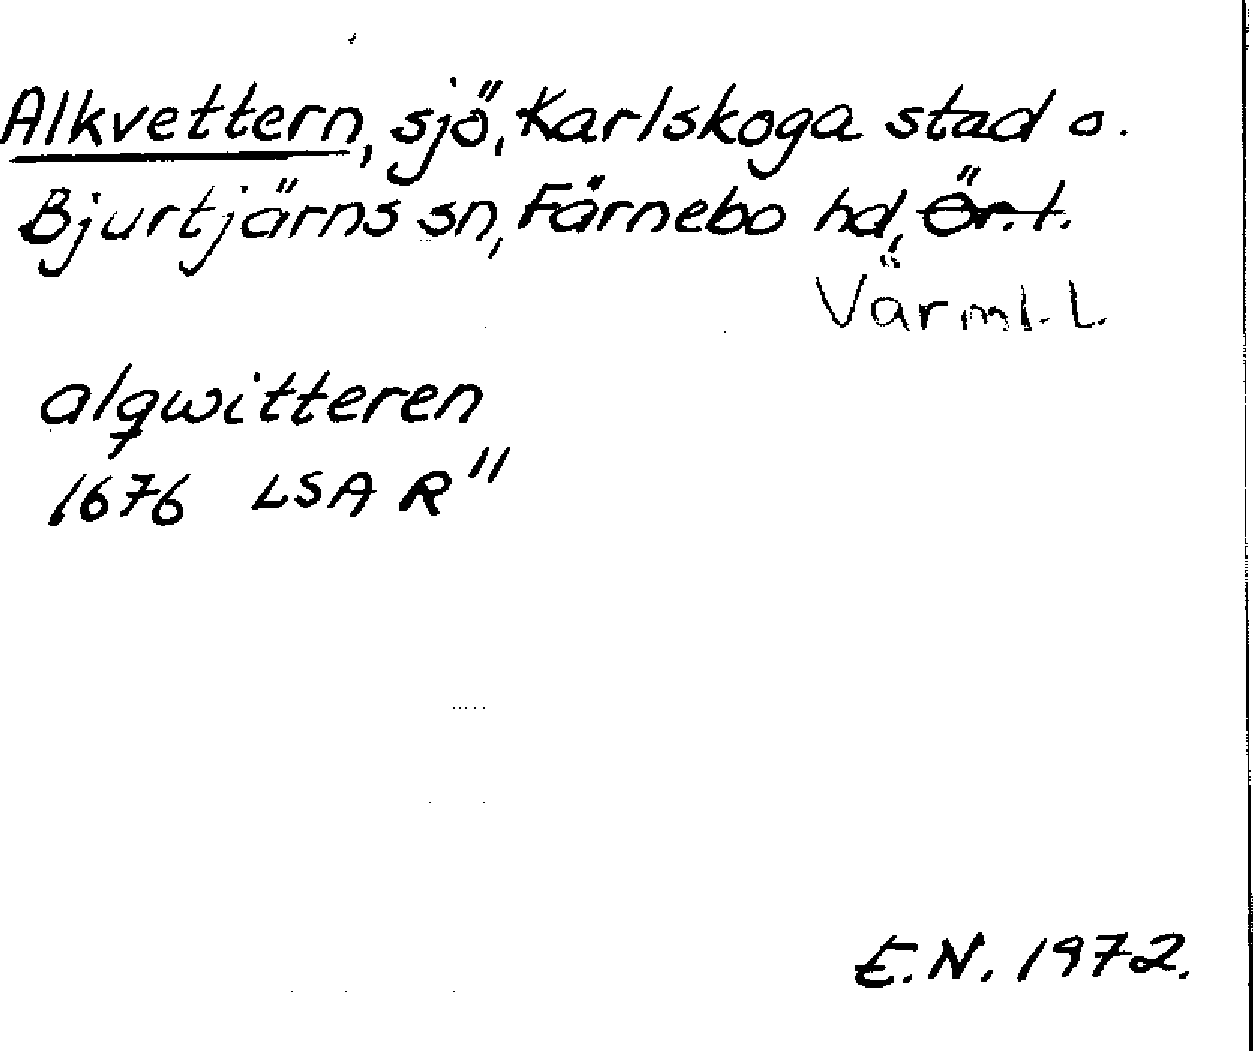 Alkvettern, sjö, Karlskoga stad o.
Bjurtjärns sn, Färnebo hd, Ör. l.
Värml. L.
alqwitteren
1676 LSA R"
E.N. 1972.